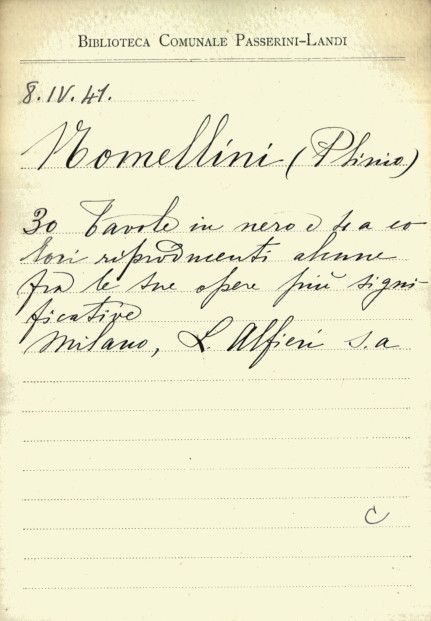 BIBLIOTECA COMUNALE PASSERINI-LANDI
8.IV.41.
Nomellini (Plinio)
30 Tavole in nero e 4 a co
lori riproducenti alcune
fra le sue opere più signi-
ficative
Milano, L. Alfieri s.a
C